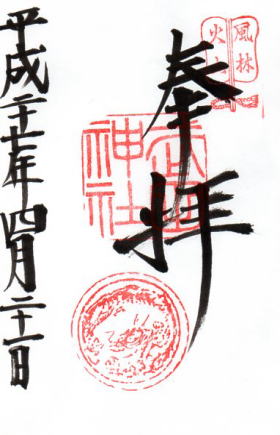 風林
火山
奉拝
武田
神社
平成二十七年四月二十一日